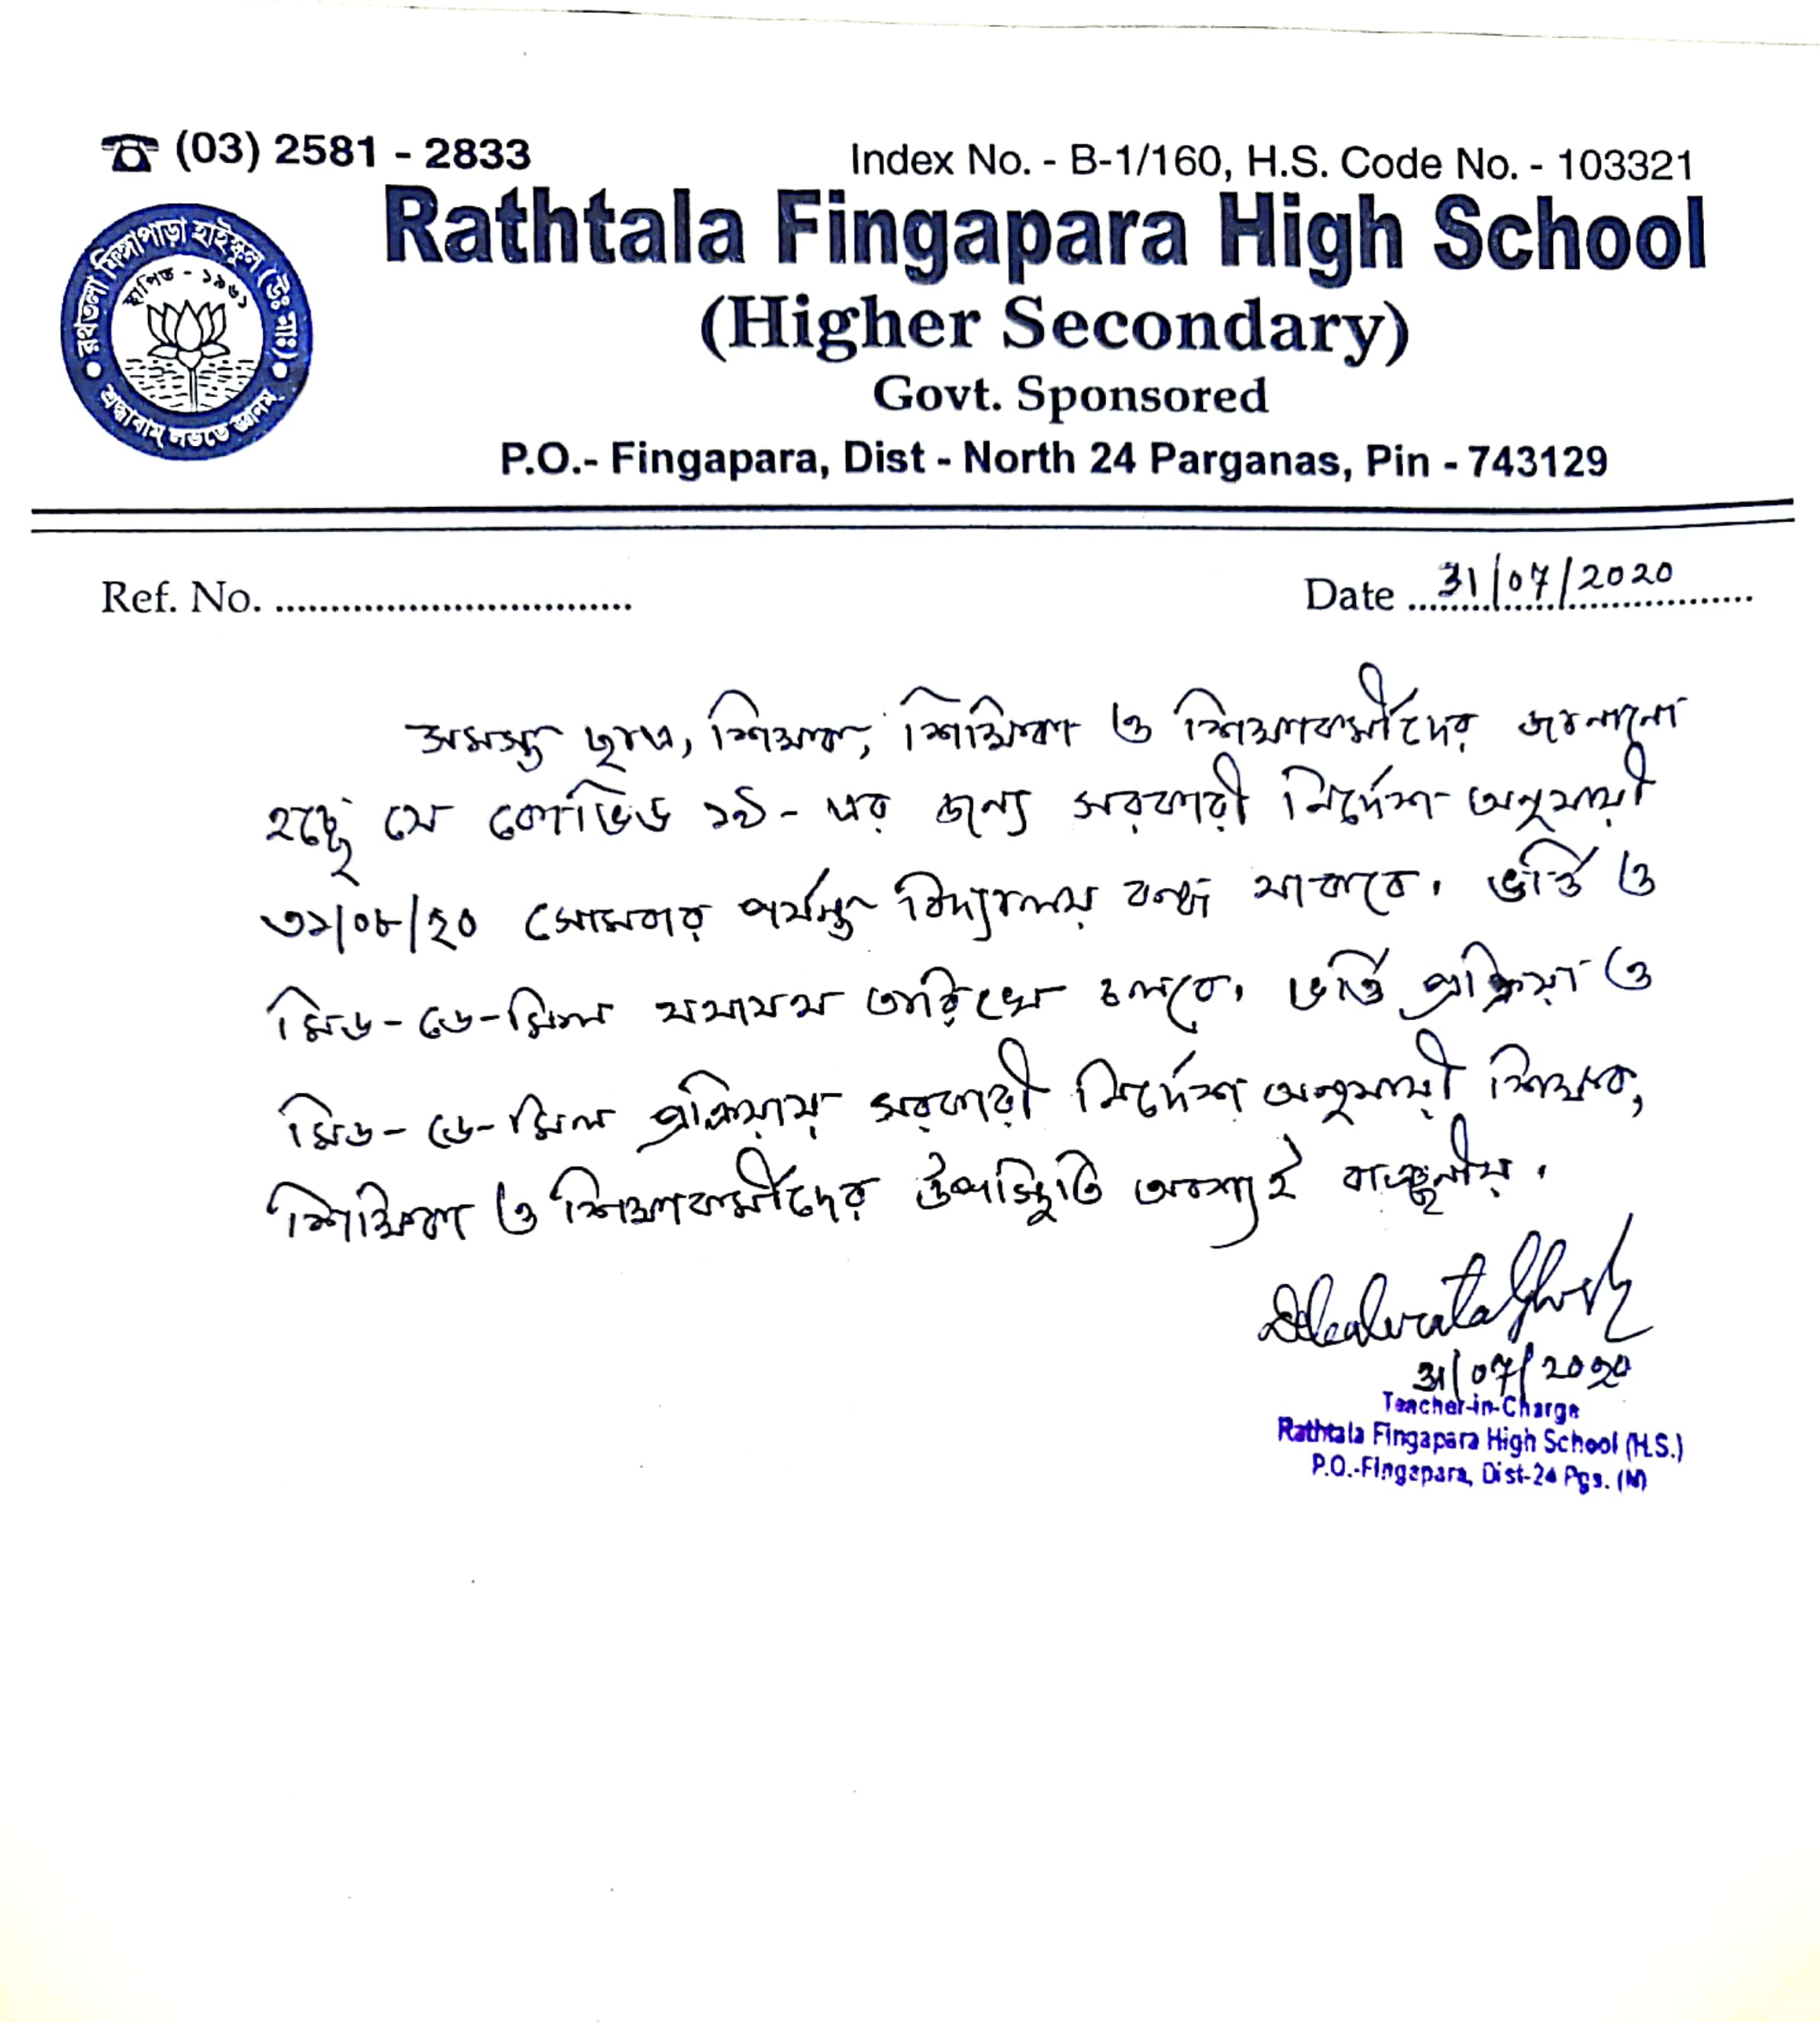 ☎ (03) 2581 - 2833
Index No. - B-1/160, H.S. Code No. - 103321
রথতলা ফিঙ্গাপাড়া হাইস্কুল (উঃ মাঃ)
স্থাপিত - ১৯৬১
শ্রদ্ধাবান্ লভতে জ্ঞানম্
Rathtala Fingapara High School
(Higher Secondary)
Govt. Sponsored
P.O.- Fingapara, Dist - North 24 Parganas, Pin - 743129
Ref. No. ................................
Date 31/07/2020
সমস্ত ছাত্র, শিক্ষক, শিক্ষিকা ও শিক্ষাকর্মীদের জানানো
হচ্ছে যে কোভিড ১৯- এর জন্য সরকারী নির্দেশ অনুযায়ী
৩১/০৮/২০ সোমবার পর্যন্ত বিদ্যালয় বন্ধ থাকবে। ভর্তি ও
মিড-ডে-মিল যথাযথ তারিখে চলবে। ভর্তি প্রক্রিয়া ও
মিড-ডে-মিল প্রক্রিয়ায় সরকারী নির্দেশ অনুযায়ী শিক্ষক,
শিক্ষিকা ও শিক্ষাকর্মীদের উপস্থিতি অবশ্যই বাঞ্ছনীয়।
Debabrata Ghosh
31/07/2020
Teacher-in-Charge
Rathtala Fingapara High School (H.S.)
P.O.-Fingapara, Dist-24 Pgs. (N)